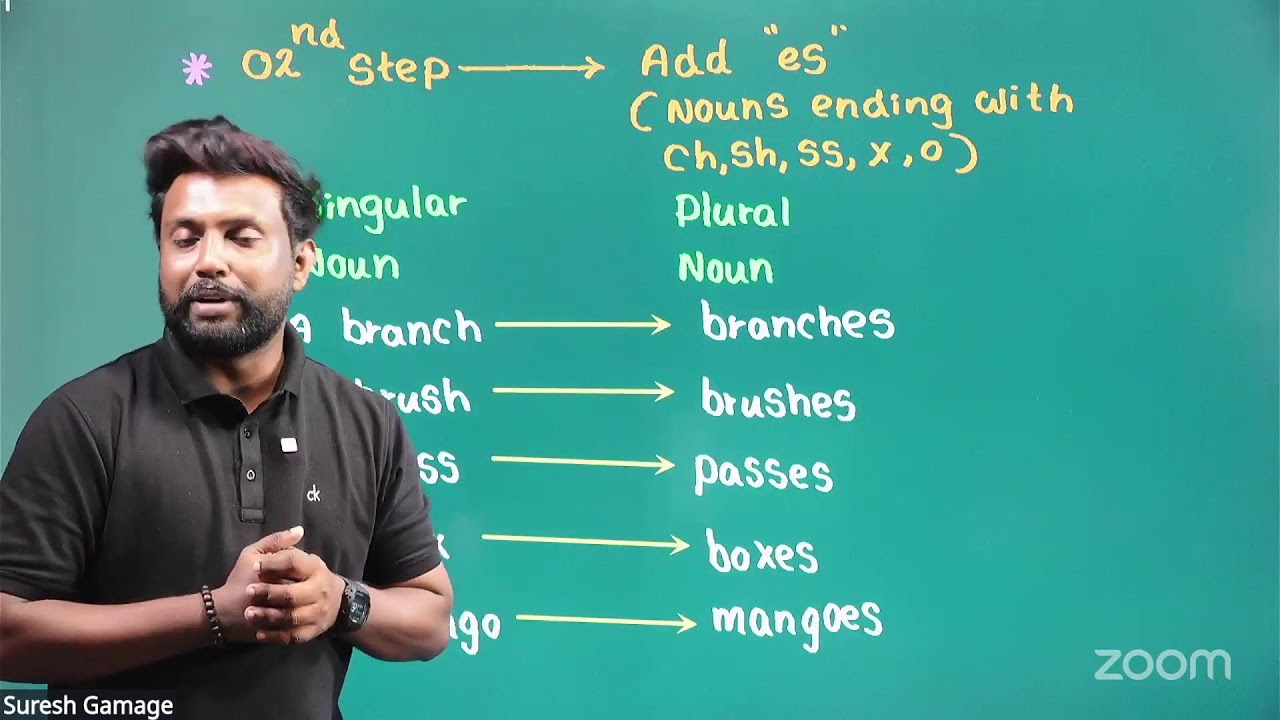 * 02nd step → Add "es"
(Nouns ending with
ch, sh, ss, x, o)
Singular Plural
Noun Noun
A branch → branches
brush → brushes
ss → passes
x → boxes
ngo → mangoes
ck
zoom
Suresh Gamage